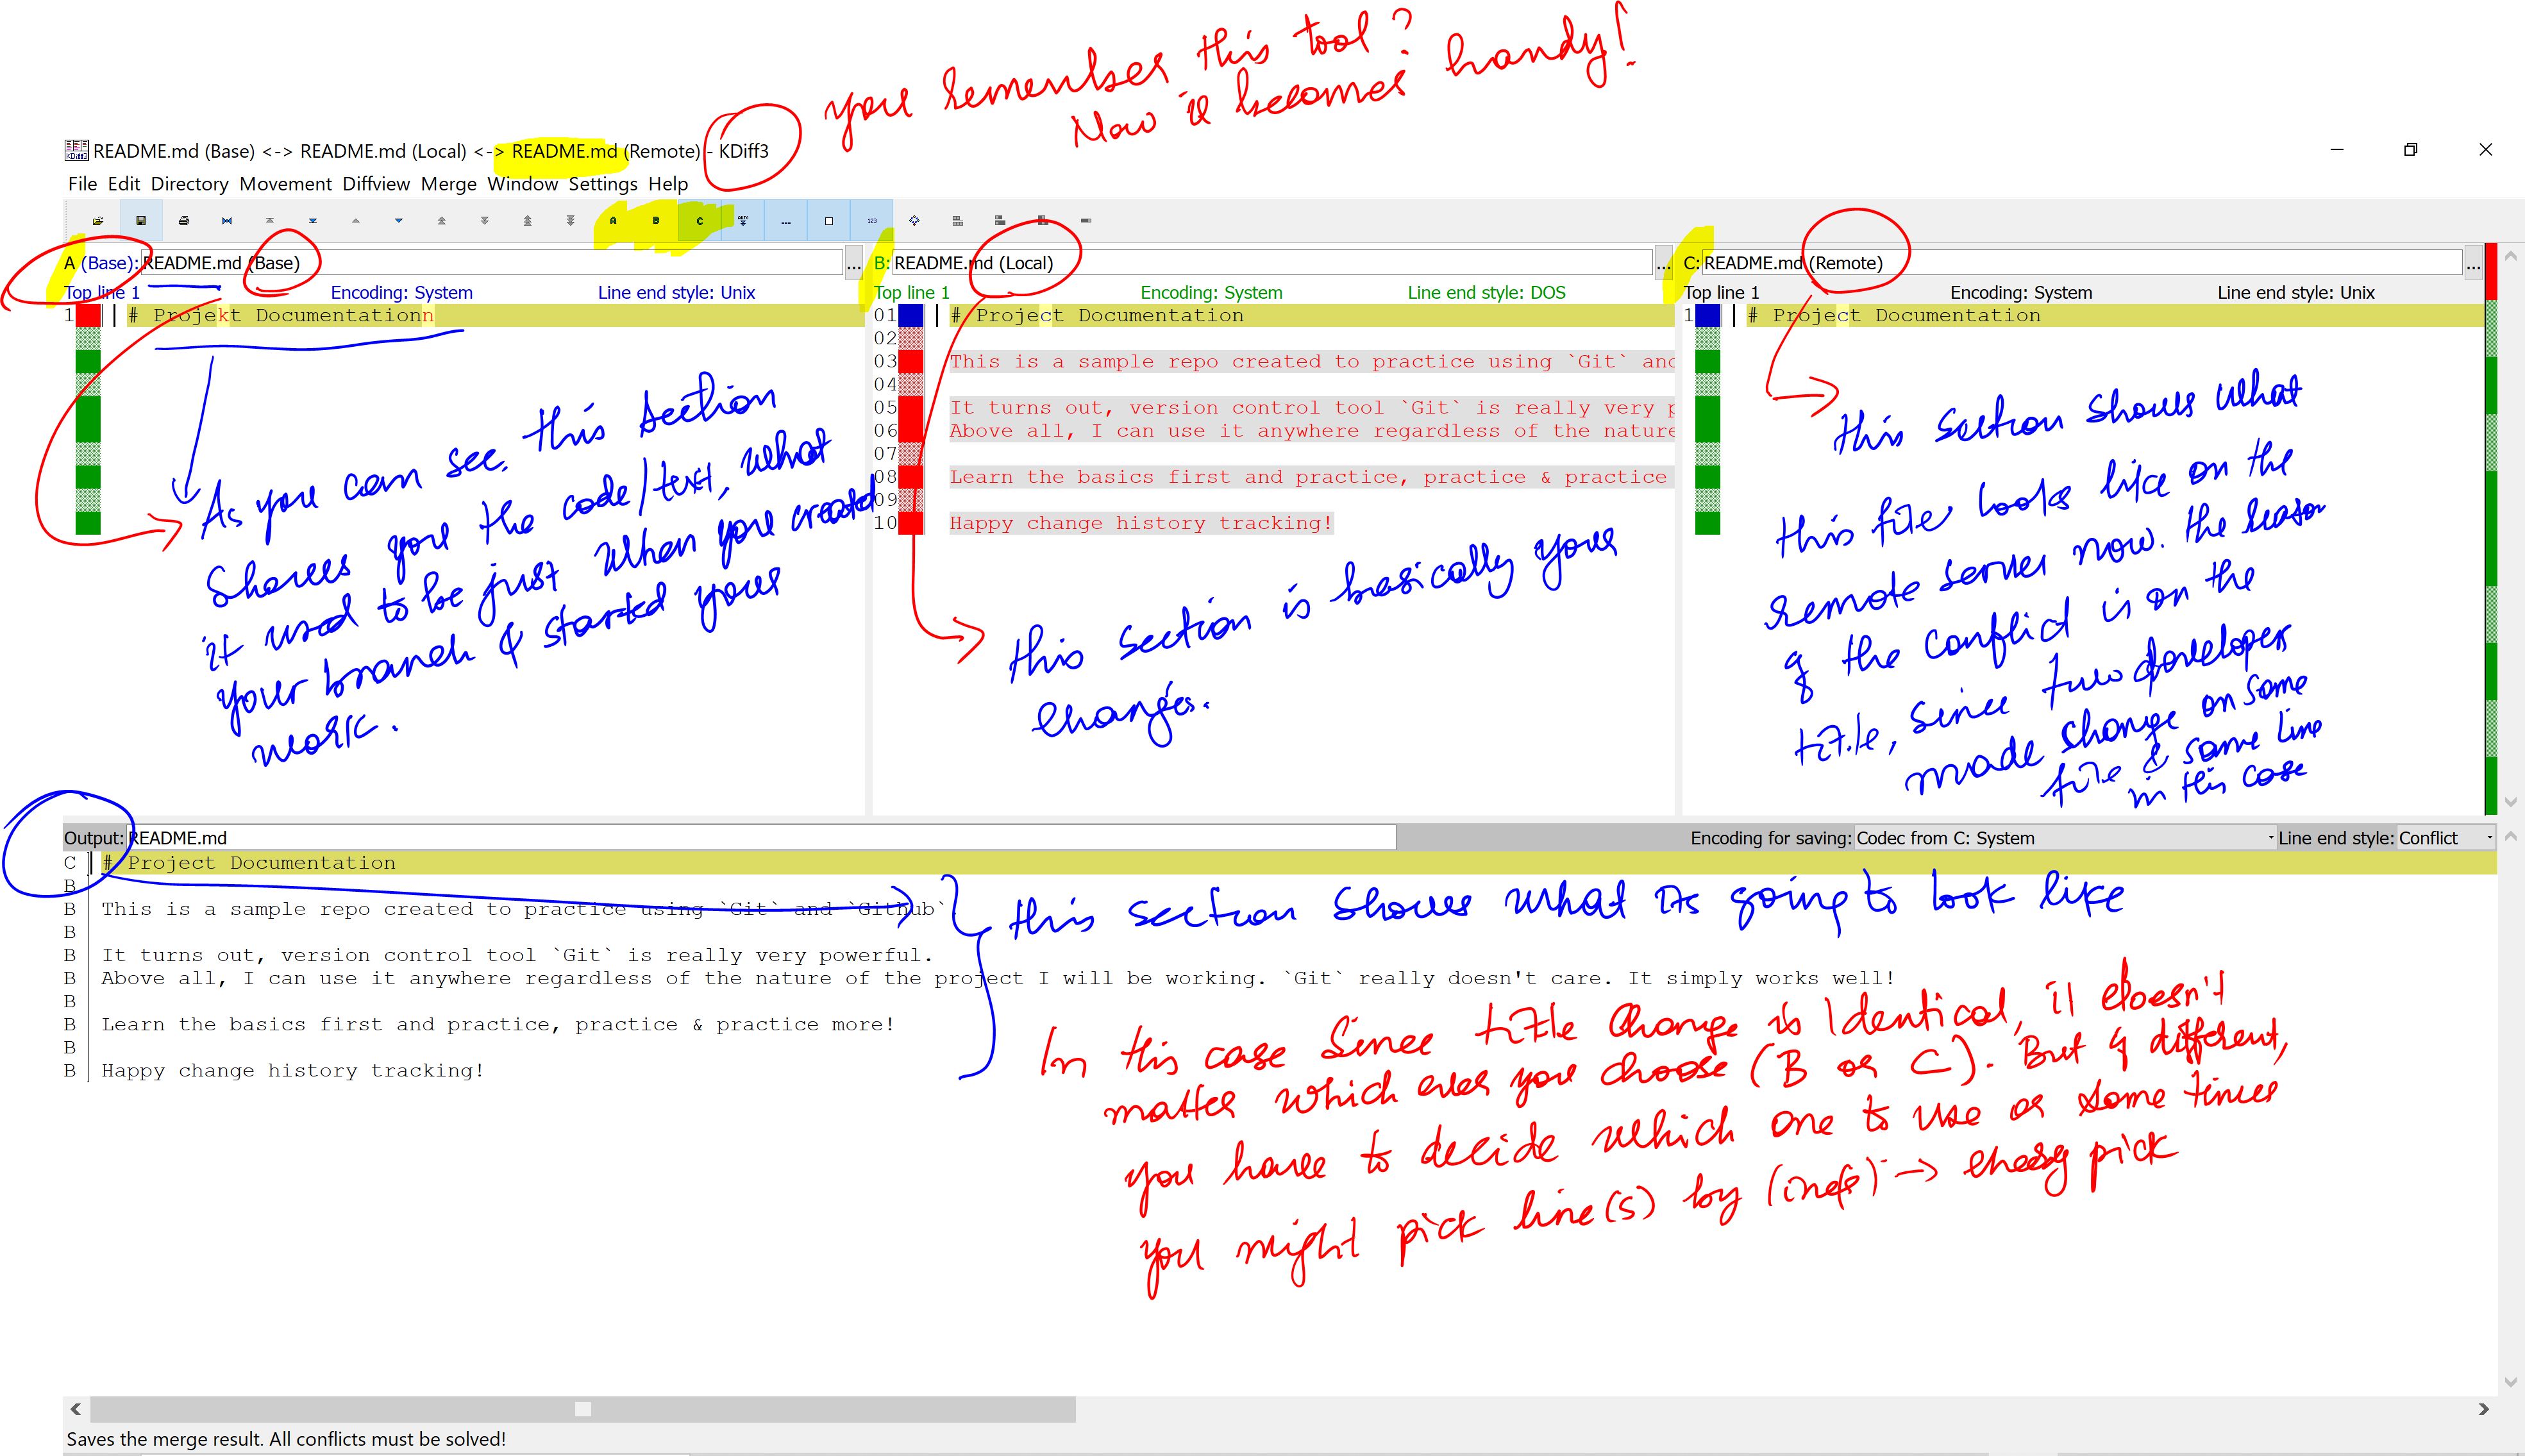 you remember this tool?
Now it becomes handy!
README.md (Base) <-> README.md (Local) <-> README.md (Remote) - KDiff3
File Edit Directory Movement Diffview Merge Window Settings Help
A B C 123
A (Base): README.md (Base) ...
Top line 1 Encoding: System Line end style: Unix
1 # Projekt Documentationn
As you can see, this section
shows you the code/text, what
it used to be just when you created
your branch & started your
work.
B: README.md (Local) ...
Top line 1 Encoding: System Line end style: DOS
01 # Project Documentation
02
03 This is a sample repo created to practice using `Git` and
04
05 It turns out, version control tool `Git` is really very p
06 Above all, I can use it anywhere regardless of the nature
07
08 Learn the basics first and practice, practice & practice
09
10 Happy change history tracking!
this section is basically your
changes.
C: README.md (Remote) ...
Top line 1 Encoding: System Line end style: Unix
1 # Project Documentation
this section shows what
this file looks like on the
remote server now. the reason
of the conflict is on the
title, since two developers
made change on same
file & same line
in this case
Output: README.md Encoding for saving: Codec from C: System Line end style: Conflict
C # Project Documentation
B
B This is a sample repo created to practice using `Git` and `Github`.
B
B It turns out, version control tool `Git` is really very powerful.
B Above all, I can use it anywhere regardless of the nature of the project I will be working. `Git` really doesn't care. It simply works well!
B
B Learn the basics first and practice, practice & practice more!
B
B Happy change history tracking!
this section shows what its going to look like
In this case since title change is identical, it doesn't
matter which ever you choose (B or C). But if different,
you have to decide which one to use or some times
you might pick line(s) by → pick
Saves the merge result. All conflicts must be solved!